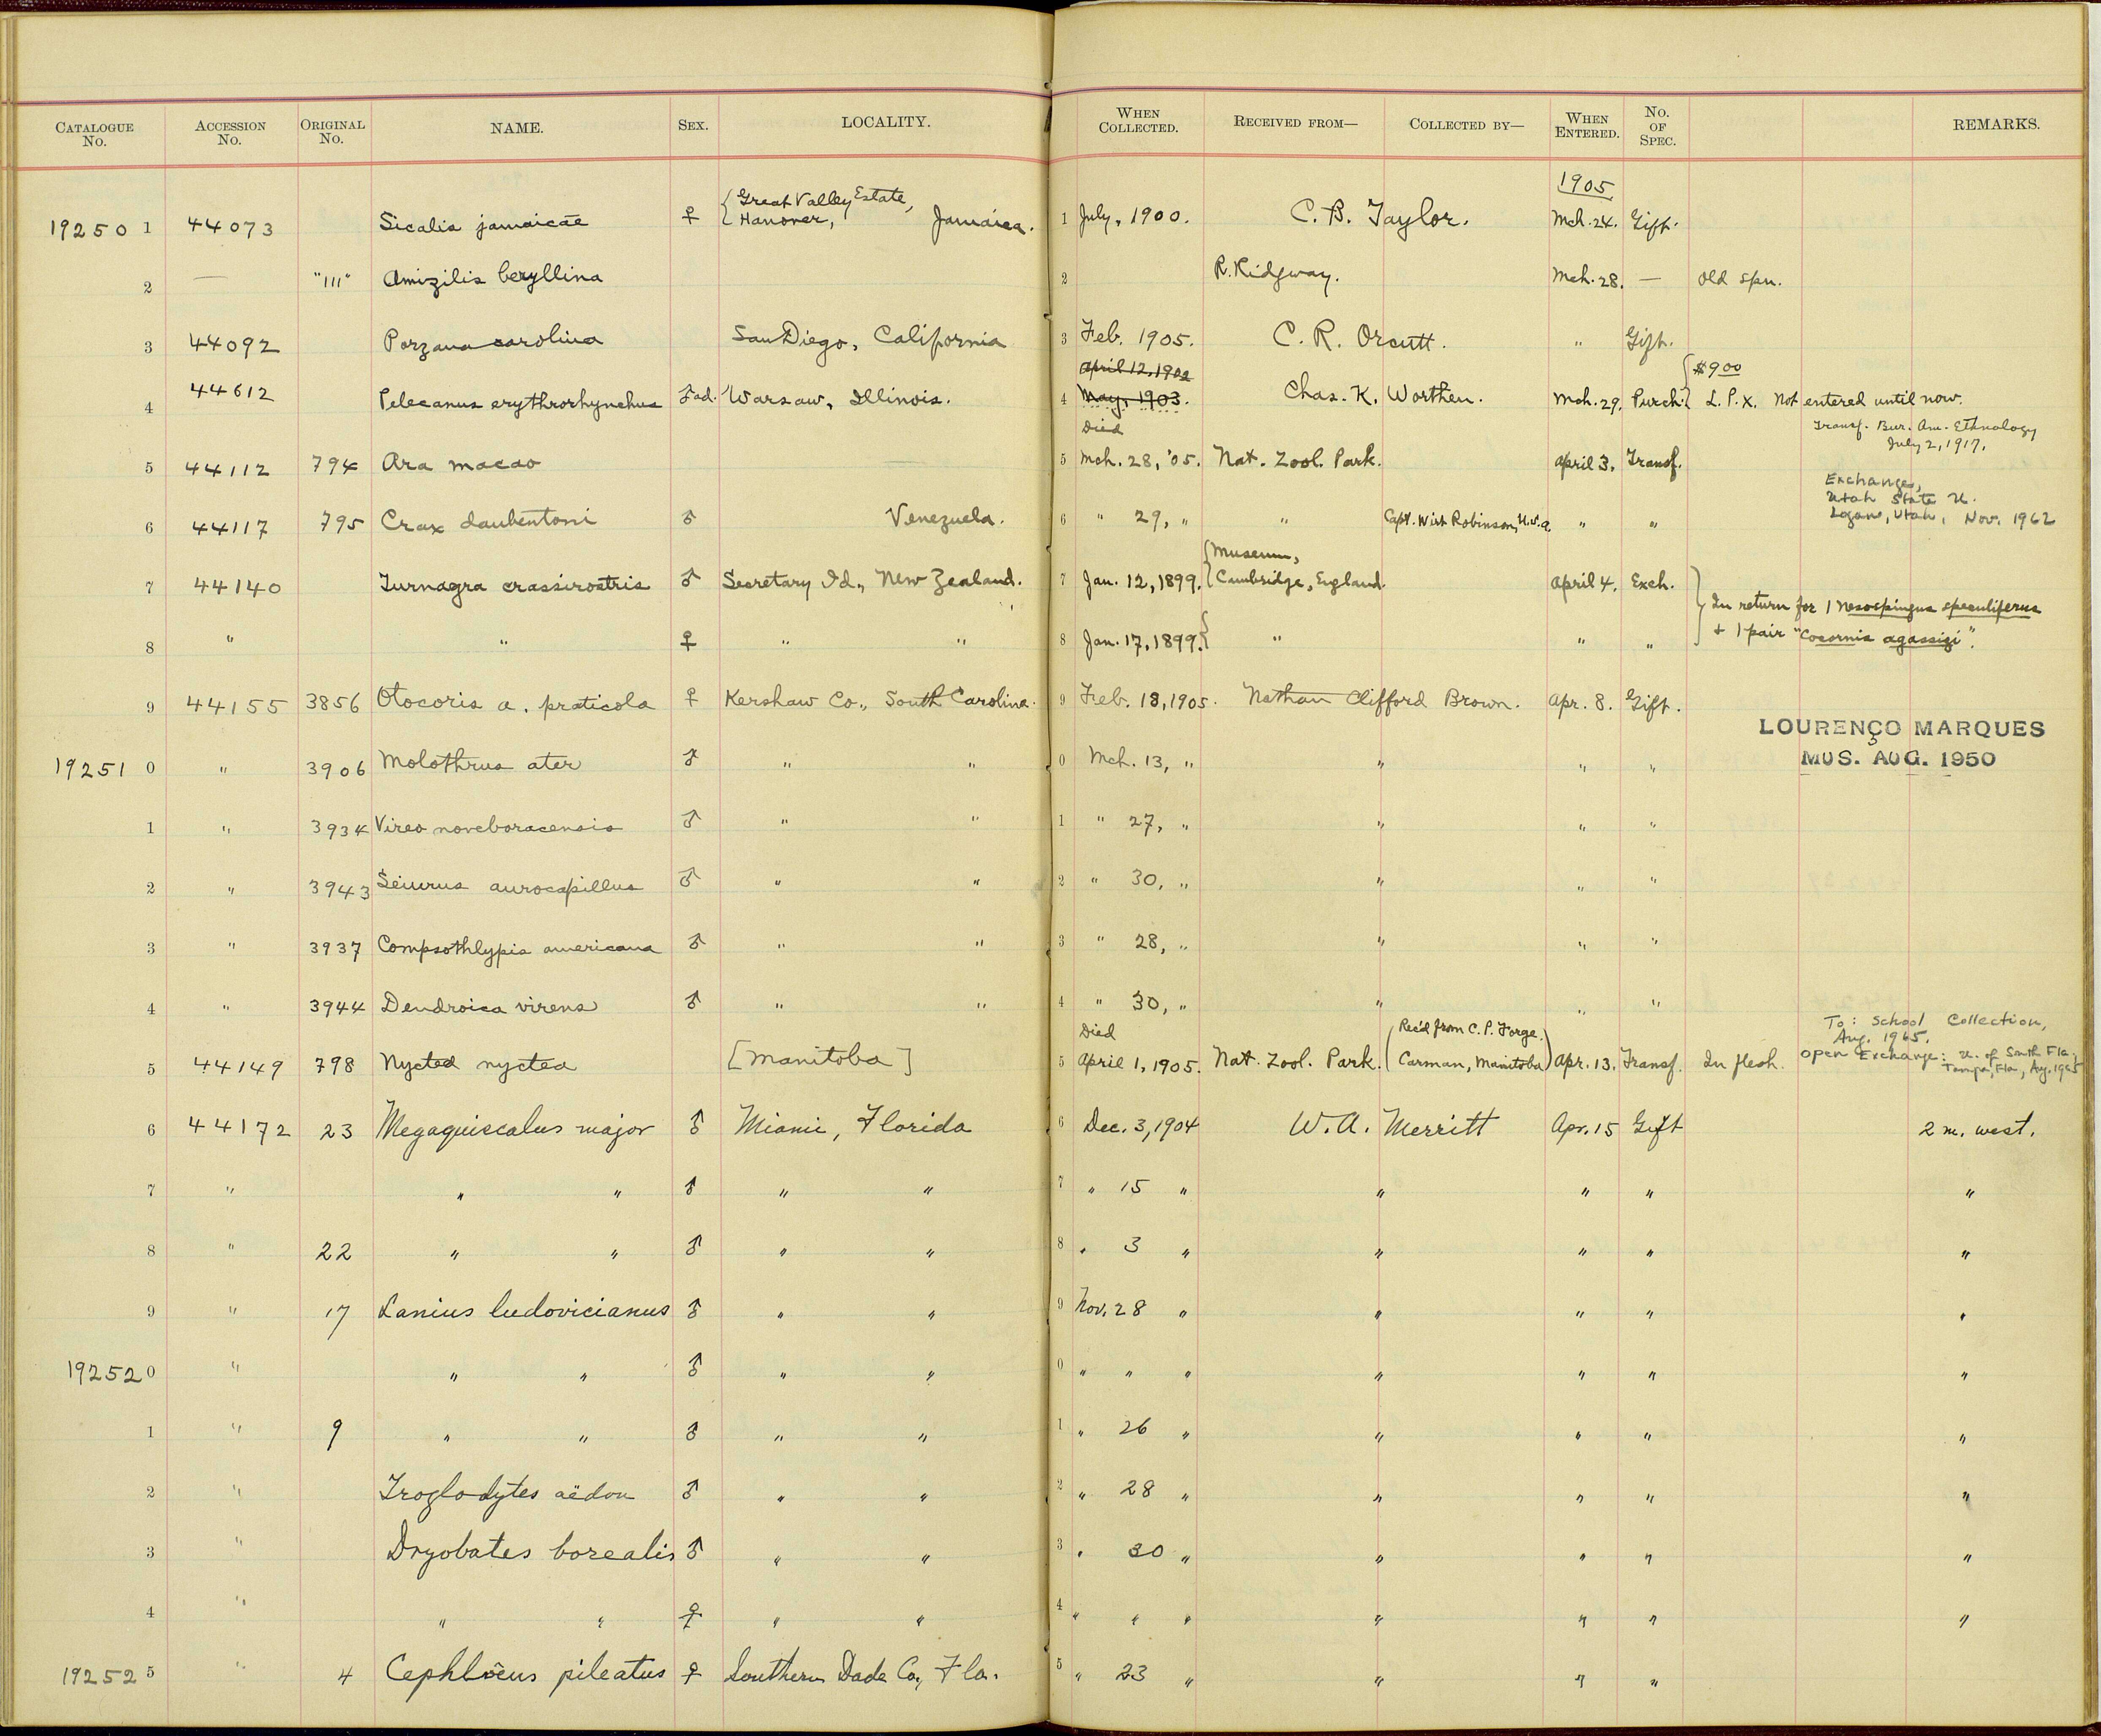 CATALOGUE No. ACCESSION No. ORIGINAL No. NAME. SEX. LOCALITY. WHEN COLLECTED. RECEIVED FROM— COLLECTED BY— WHEN ENTERED. No. OF SPEC. REMARKS.
1905
192501 44073 Sicalis jamaicae ♀ {Great Valley Estate, Hanover, Jamaica. 1 July, 1900. C. B. Taylor. Mch. 24. Gift.
2 — "111" Amizilis beryllina 2 R. Ridgway. Mch. 28. — Old spn.
3 44092 Porzana carolina San Diego, California 3 Feb. 1905. C. R. Orcutt. " Gift.
April 12, 1902
4 44612 Pelecanus erythrorhynchus ♂ad. Warsaw, Illinois. 4 May, 1903. Chas. K. Worthen. Mch. 29. Purch. { $9.00 L. P. X. Not entered until now.
Died
5 44112 794 Ara macao 5 Mch. 28, '05. Nat. Zool. Park. April 3. Transf. Transf. Bur. Am. Ethnology July 2, 1917.
6 44117 795 Crax daubentoni ♂ Venezuela. 6 " 29, " " Capt. Wirt Robinson, U.S.A. " " Exchange, Utah State U. Logan, Utah, Nov. 1962
7 44140 Turnagra crassirostris ♂ Secretary Id., New Zealand. 7 Jan. 12, 1899. {Museum, Cambridge, England. April 4. Exch. } In return for 1 Nesospingus speculiferus
8 " " ♀ " " 8 Jan. 17, 1899. { " " " + 1 pair "Cocornis agassizi".
9 44155 3856 Otocoris a. praticola ♀ Kershaw Co., South Carolina. 9 Feb. 13, 1905. Nathan Clifford Brown. Apr. 8. Gift.
LOURENÇO MARQUES
MUS. AUG. 1950
192510 " 3906 Molothrus ater ♂ " " 0 Mch. 13, " " " "
1 " 3934 Vireo noveboracensis ♂ " " 1 " 27, " " " "
2 " 3943 Seiurus aurocapillus ♂ " " 2 " 30, " " " "
3 " 3937 Compsothlypis americana ♂ " " 3 " 28, " " " "
4 " 3944 Dendroica virens ♂ " " 4 " 30, " " " "
Died
5 44149 798 Nyctea nyctea [Manitoba] 5 April 1, 1905. Nat. Zool. Park. (Rec'd from C. P. Forge. Carman, Manitoba) Apr. 13. Transf. In flesh. To: School Collection, Aug. 1965.
Open Exchange: U. of South Fla., Tampa, Fla, Aug. 1965
6 44172 23 Megaquiscalus major ♂ Miami, Florida 6 Dec. 3, 1904 W. A. Merritt Apr. 15 Gift 2 m. west.
7 " " " ♂ " " 7 " 15 " " " " "
8 " 22 " " ♂ " " 8 " 3 " " " " "
9 " 17 Lanius ludovicianus ♂ " " 9 Nov. 28 " " " " "
192520 " " " ♂ " " 0 " " " " " " "
1 " 9 " " ♂ " " 1 " 26 " " " " "
2 " Troglodytes aëdon ♂ " " 2 " 28 " " " " "
3 " Dryobates borealis ♂ " " 3 " 30 " " " " "
4 " " " ♀ " " 4 " " " " " " "
192525 " 4 Cephloeus pileatus ♀ Southern Dade Co., Fla. 5 " 23 " " " "